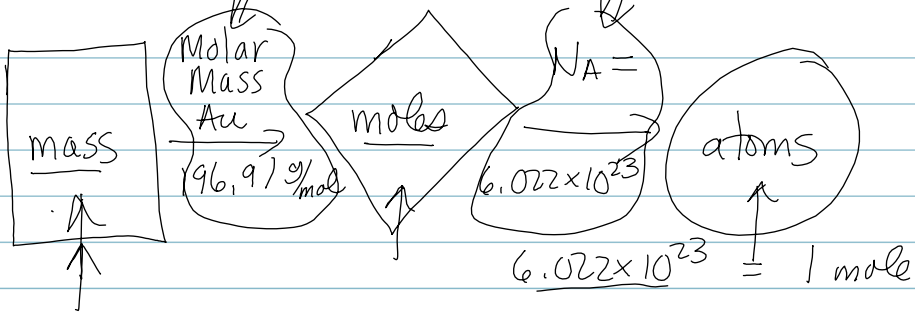 mass
Molar
Mass
Au
196.97 g/mol
moles
NA =
6.022×10²³
atoms
6.022×10²³ = 1 mole